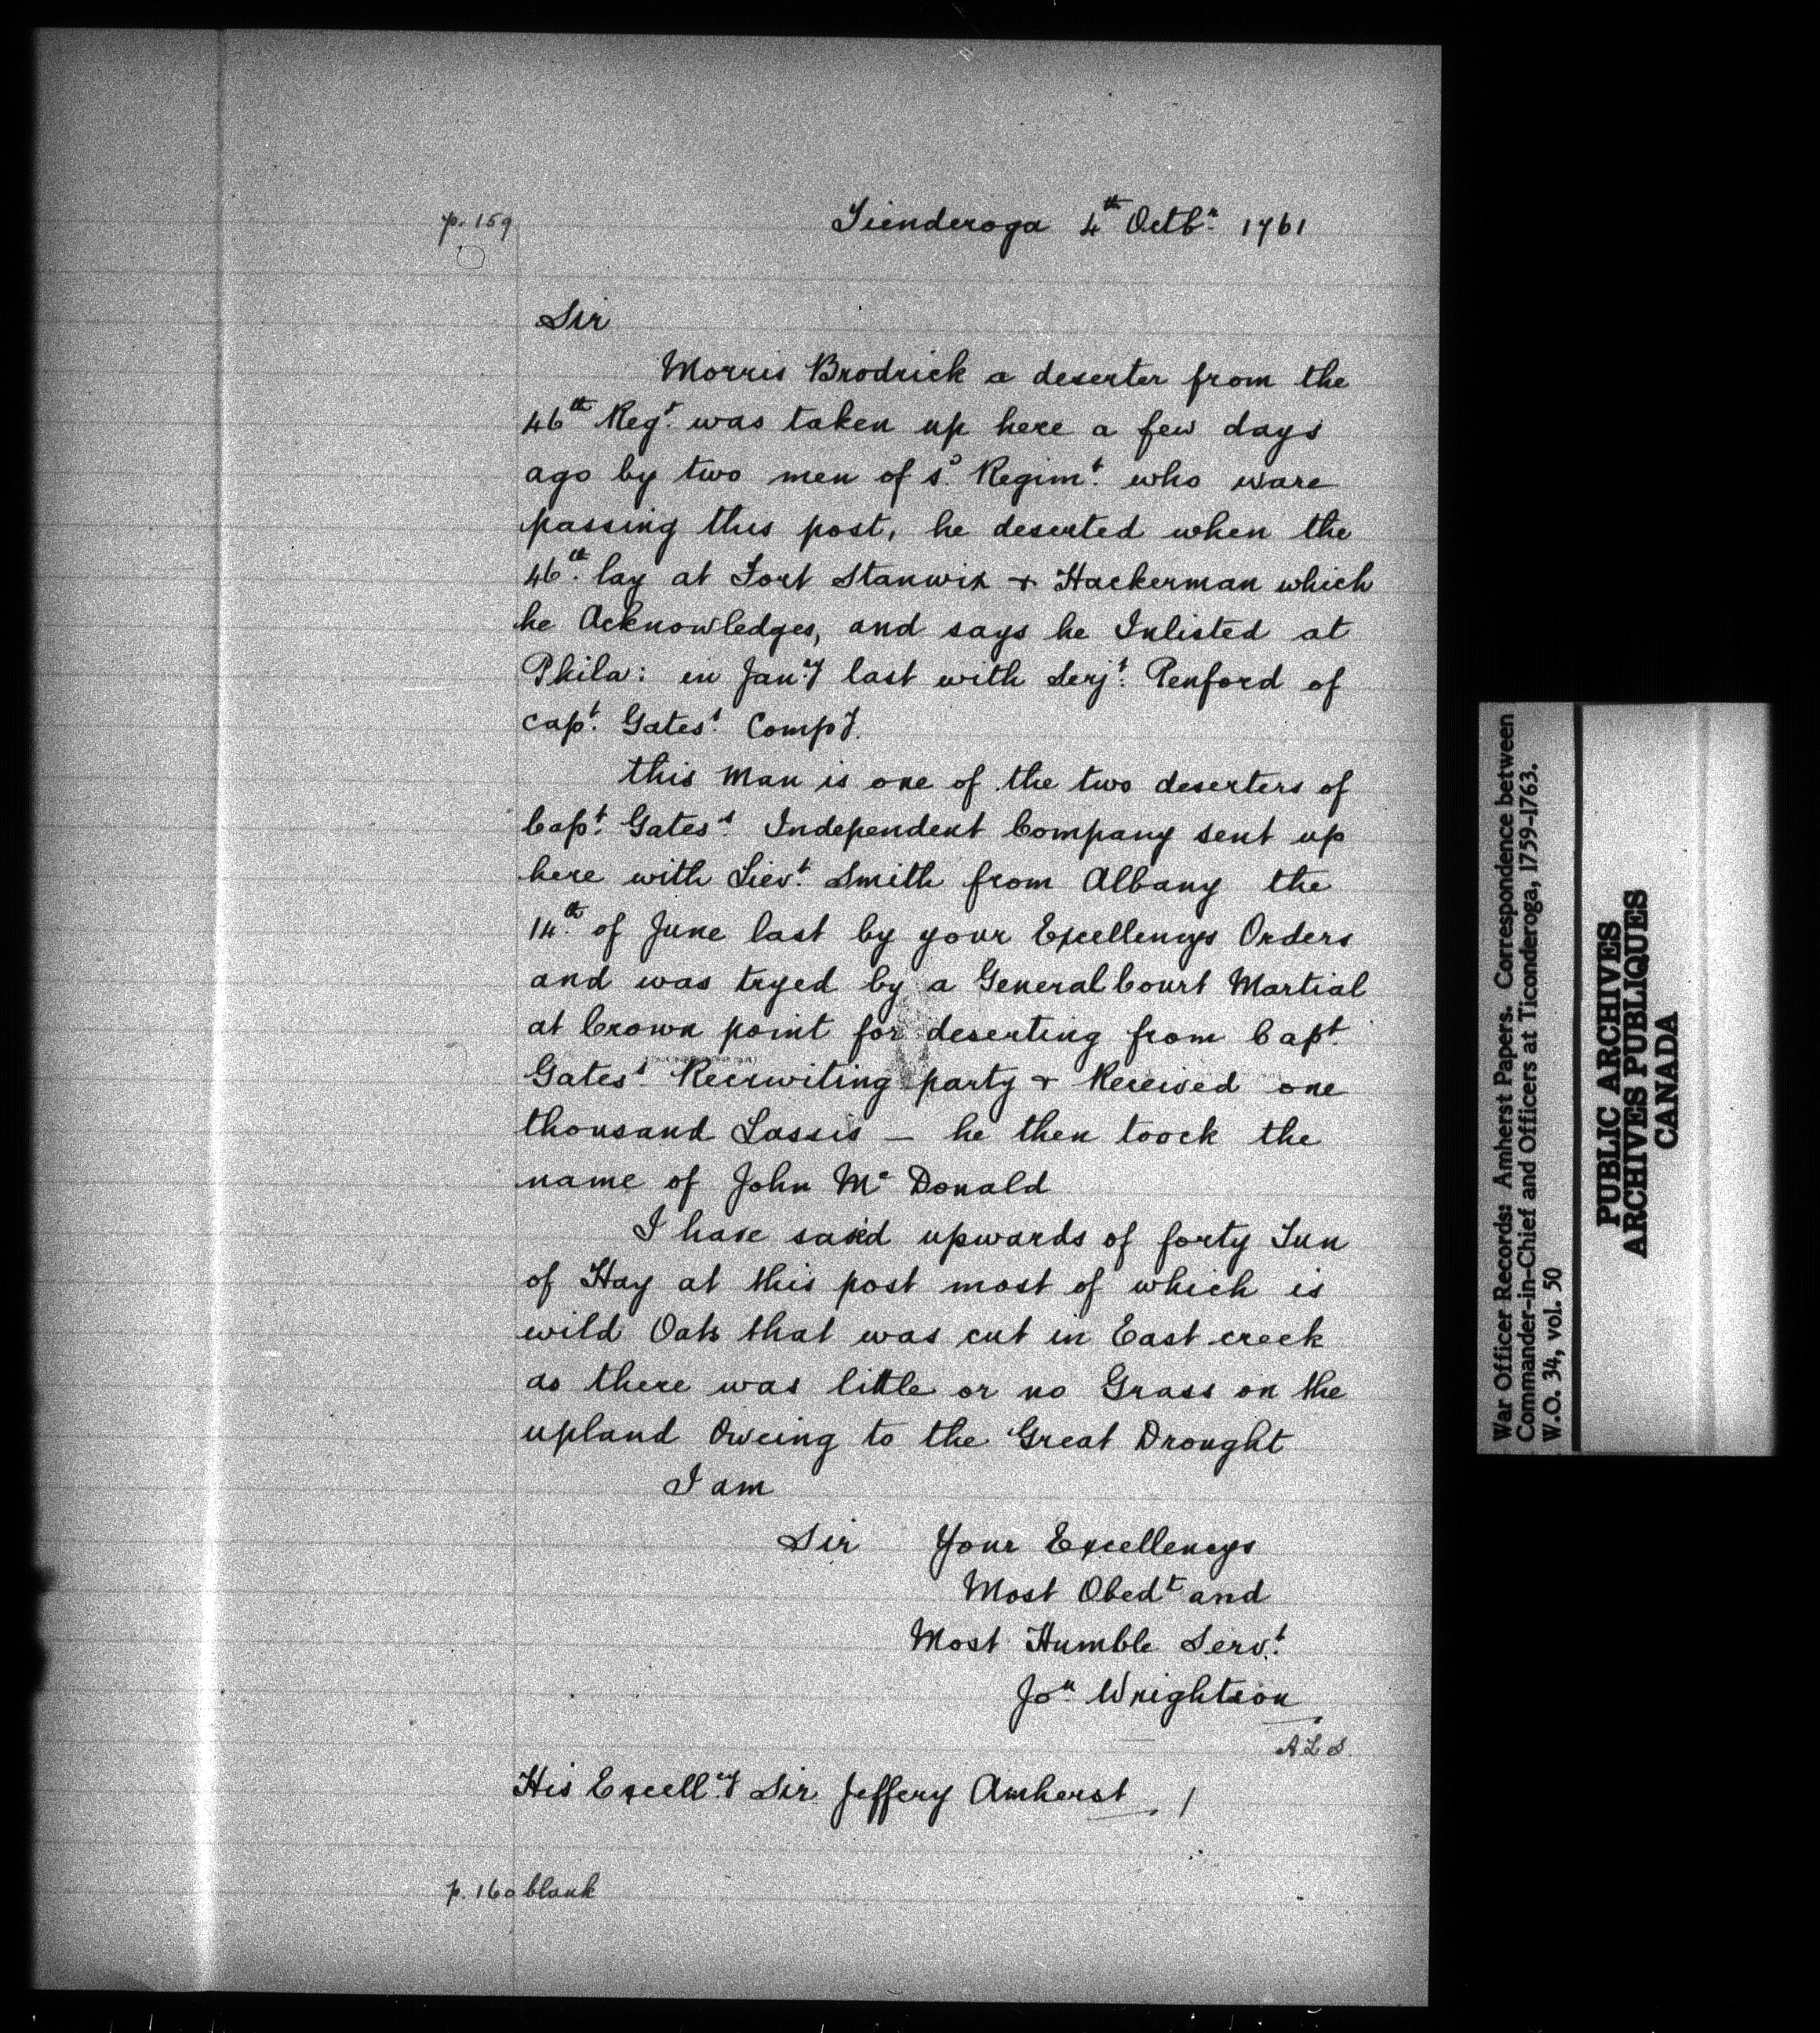 p. 159
Tienderoga 4th Octbr 1761
Sir
Morris Brodrick a deserter from the
46th Regt. was taken up here a few days
ago by two men of sd. Regimt. who ware
passing this post, he deserted when the
46th. lay at Fort Stanwix & Hackerman which
he Acknowledges, and says he Inlisted at
Phila: in Jany. last with Serjt. Penford of
capt. Gates's Compy.
this Man is one of the two deserters of
Capt. Gates's Independent Company sent up
here with Lievt. Smith from Albany the
14th. of June last by your Excellencys Orders
and was tryed by a General Court Martial
at Crown point for deserting from Capt.
Gates's Recruiting party & Received one
thousand Lassis — he then toock the
name of John Mc Donald
I have saved upwards of forty Tun
of Hay at this post most of which is
wild Oats that was cut in East creek
as there was little or no Grass on the
upland Oweing to the Great Drought
I am
Sir Your Excellencys
Most Obedt and
Most Humble Servt.
Jon. Wrightson
A L S.
His Excell.cy Sir Jeffery Amherst /
p. 160 blank
War Officer Records: Amherst Papers. Correspondence between
Commander-in-Chief and Officers at Ticonderoga, 1759-1763.
W.O. 34, vol. 50
PUBLIC ARCHIVES
ARCHIVES PUBLIQUES
CANADA